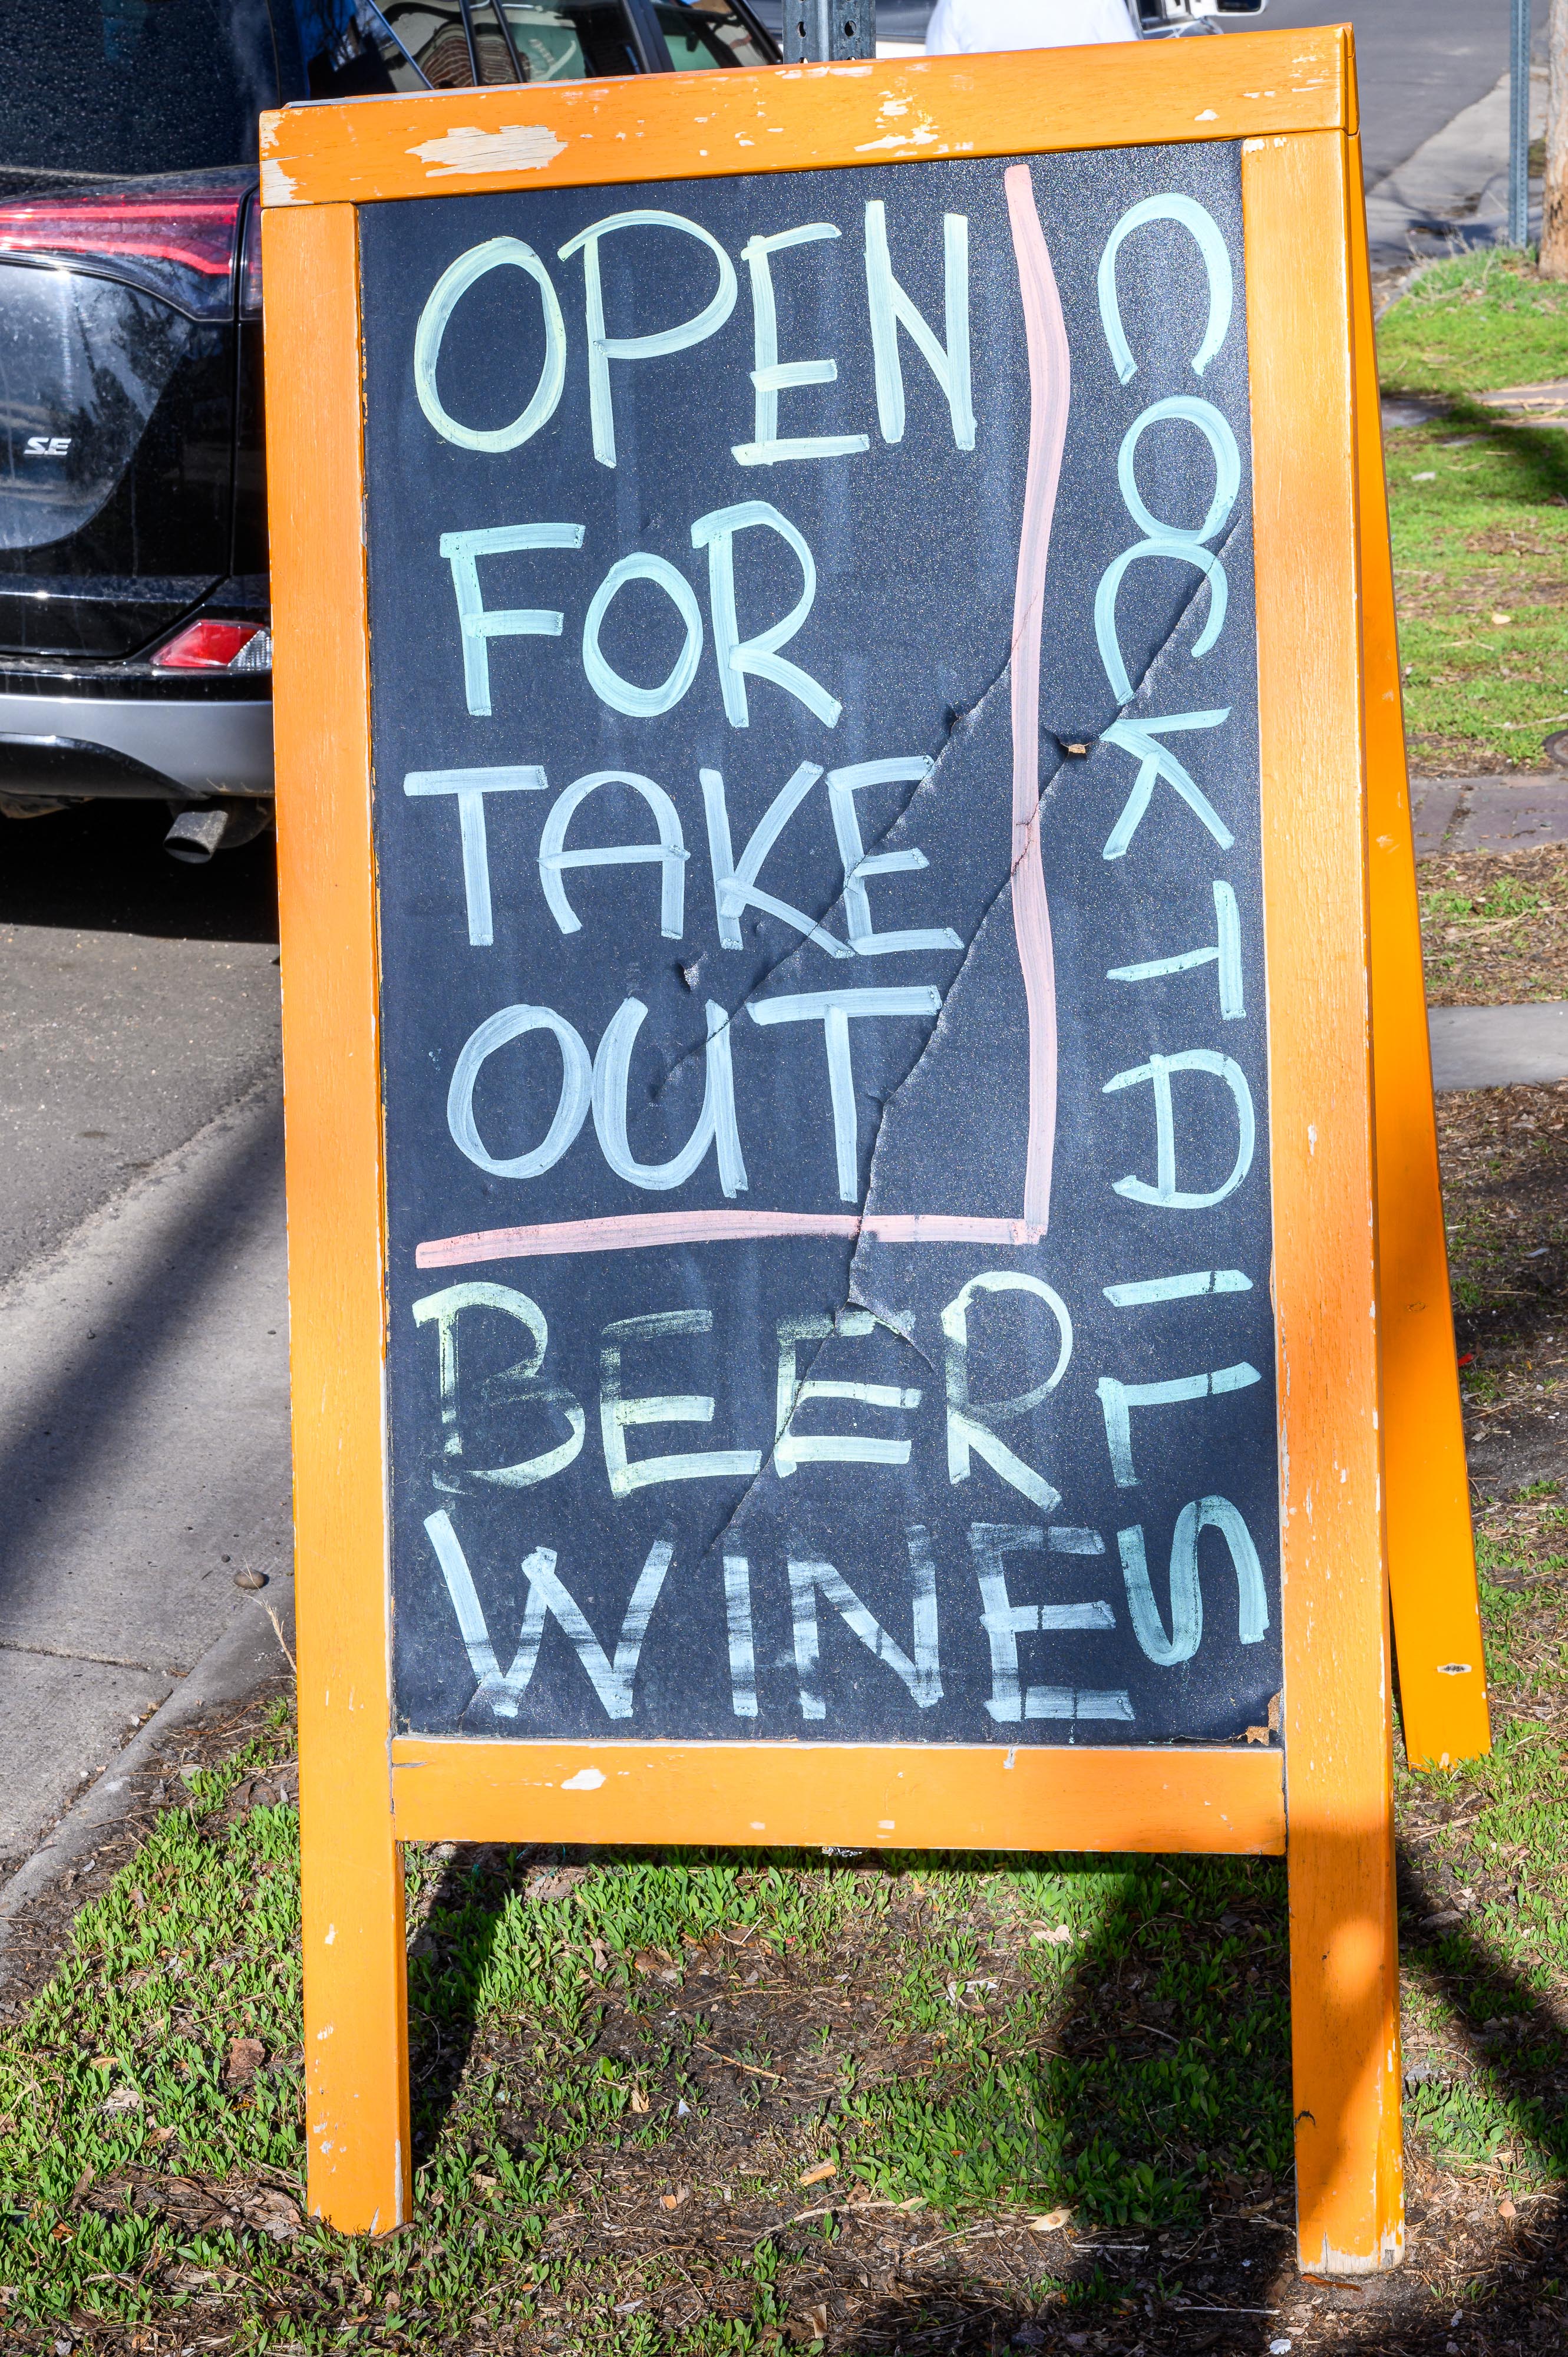 OPEN
FOR
TAKE
OUT
BEER
WINES
COCKTAILS
SE